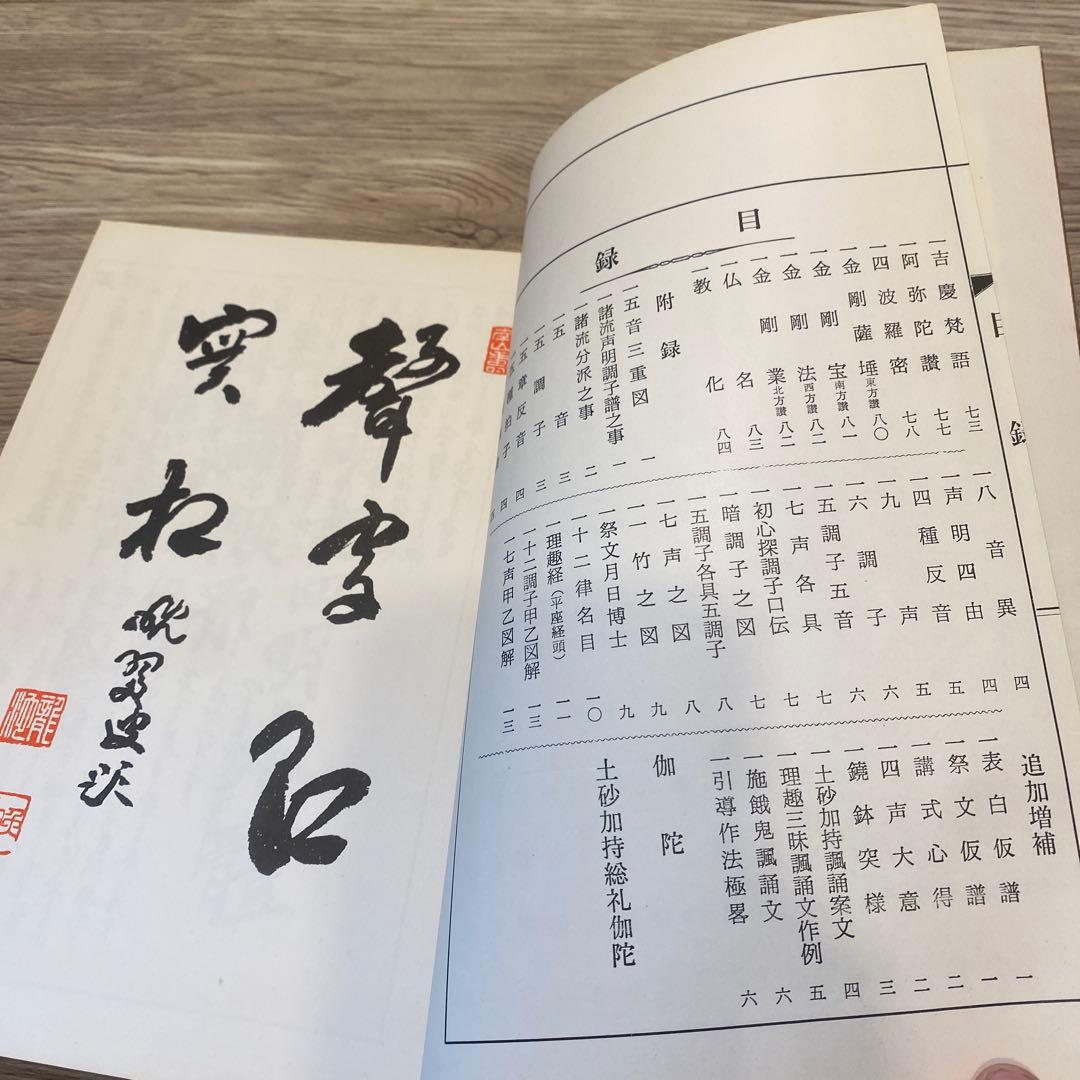 目録
一吉慶梵語 七三
一阿弥陀讃 七七
一四波羅密 七八
一金剛薩埵 東方讃 八〇
一金剛宝 南方讃 八一
一金剛法 西方讃 八二
一金剛業 北方讃 八二
一仏名 八三
一教化 八四
附録
一五音三重図 一
一諸流声明調子譜之事 一
一諸流分派之事 二
一五音 三
一五調子 三
一五章反音 四
一八音異 四
一声明四由 四
一四種反音 五
一九声 五
一六調子 六
一五調子五音 六
一七声各具 七
一初心探調子口伝 七
一暗調子之図 七
一五調子各具五調子 八
一七声之図 八
一一竹之図 九
一祭文月日博士 九
一十二律名目 一〇
一理趣経(平座経頭) 一一
一十二調子甲乙図解 一三
一七声甲乙図解 一三
追加増補
一表白仮譜 一
一祭文仮譜 一
一講式心得 二
一四声大意 二
一鐃鉢突様 三
一土砂加持諷誦案文 四
一理趣三昧諷誦文作例 五
一施餓鬼諷誦文 六
一引導作法極畧 六
伽陀
土砂加持総礼伽陀
目録
聲字即
實相